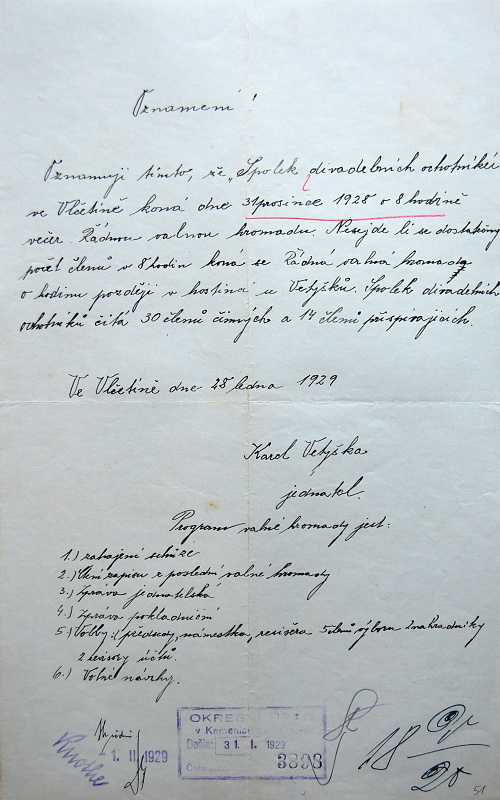 Oznamení!
Oznamuji tímto, že „Spolek divadelních ochotníků
ve Vlčetíně koná dne 31 prosince 1928 o 8 hodině
večer. Řádnou valnou hromadu. Nesejde li se dostatečný
počet členů v 8 hodin kona se Řádná valná hromada
o hodinu později v hostinci u Vetyšků. Spolek divadelních
ochotníků čítá 30 členů činných a 14 členů přispívajících.
Ve Vlčetíně dne 28 ledna 1929
Karel Vetyška
jednatel.
Program valné hromady jest:
1.) zahajení schůze
2.) Čtení zapisu z poslední valné hromady
3.) Zpráva jednatelska
4.) Zpráva pokladniční
5.) Volby: (předsedy, náměstka, resiséra 5 členů výboru 2 nahradníky
2 revisory účtů.
6.) Volné návrhy.
OKRESNÍ ÚŘAD
v Kamenici
Došlo: 31. 1. 1929
Číslo: 3898
1. II. 1929
18
51